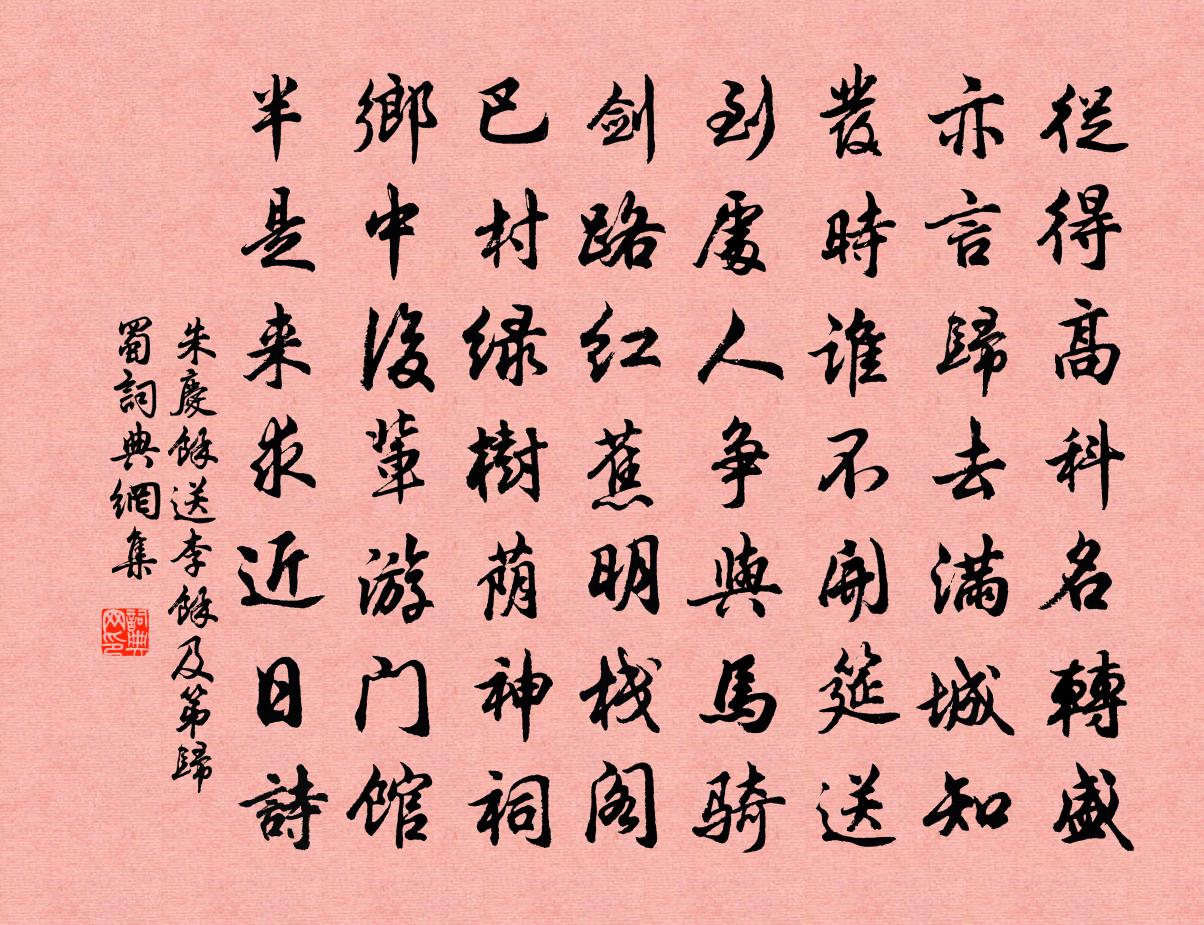 從得高科名轉盛
亦言歸去滿城知
發時誰不開筵送
到處人争與馬骑
劍路红蕉明栈阁
巴村绿樹荫神祠
鄉中後輩游门馆
半是来求近日詩
朱慶餘送李餘及第歸
蜀詞典網集
詞典
网印